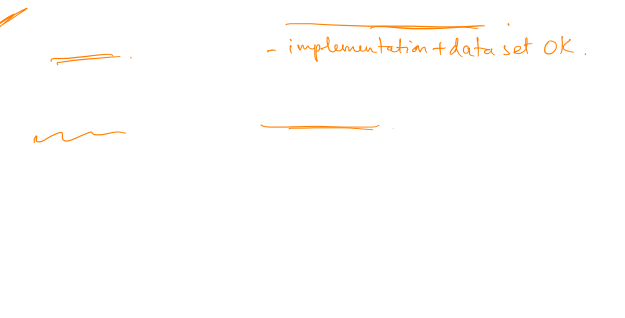 - implementation + data set OK.